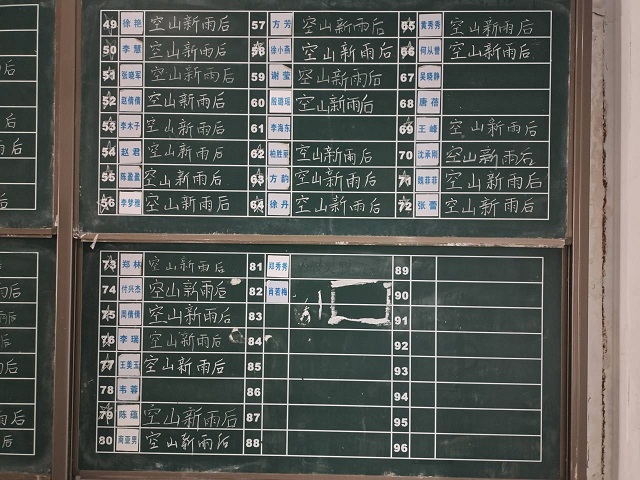 49 徐艳 空山新雨后 57 方芳 空山新雨后 65 黄秀秀 空山新雨后
50 李慧 空山新雨后 58 徐小燕 空山新雨后 66 何从誉 空山新雨后
51 张晓军 空山新雨后 59 谢莹 空山新雨后 67 吴晓静
52 赵倩倩 空山新雨后 60 殷璐瑶 空山新雨后 68 唐蓓
53 李木子 空山新雨后 61 李海东 69 王峰 空山新雨后
54 赵君 空山新雨后 62 柏胜丽 空山新雨后 70 沈承刚 空山新雨后
55 陈盈盈 空山新雨后 63 方韵 空山新雨后 71 魏菲菲 空山新雨后
56 李梦雅 空山新雨后 64 徐丹 空山新雨后 72 张蕾 空山新雨后
73 郑林 空山新雨后 81 郑秀秀 89
74 付兴杰 空山新雨后 82 肖若梅 90
75 周倩倩 空山新雨后 83 91
76 李瑞 空山新雨后 84 92
77 王美玉 空山新雨后 85 93
78 韦蓉 86 94
79 陈蕴 空山新雨后 87 95
80 商亚男 空山新雨后 88 96
后
后
后
后
后
后